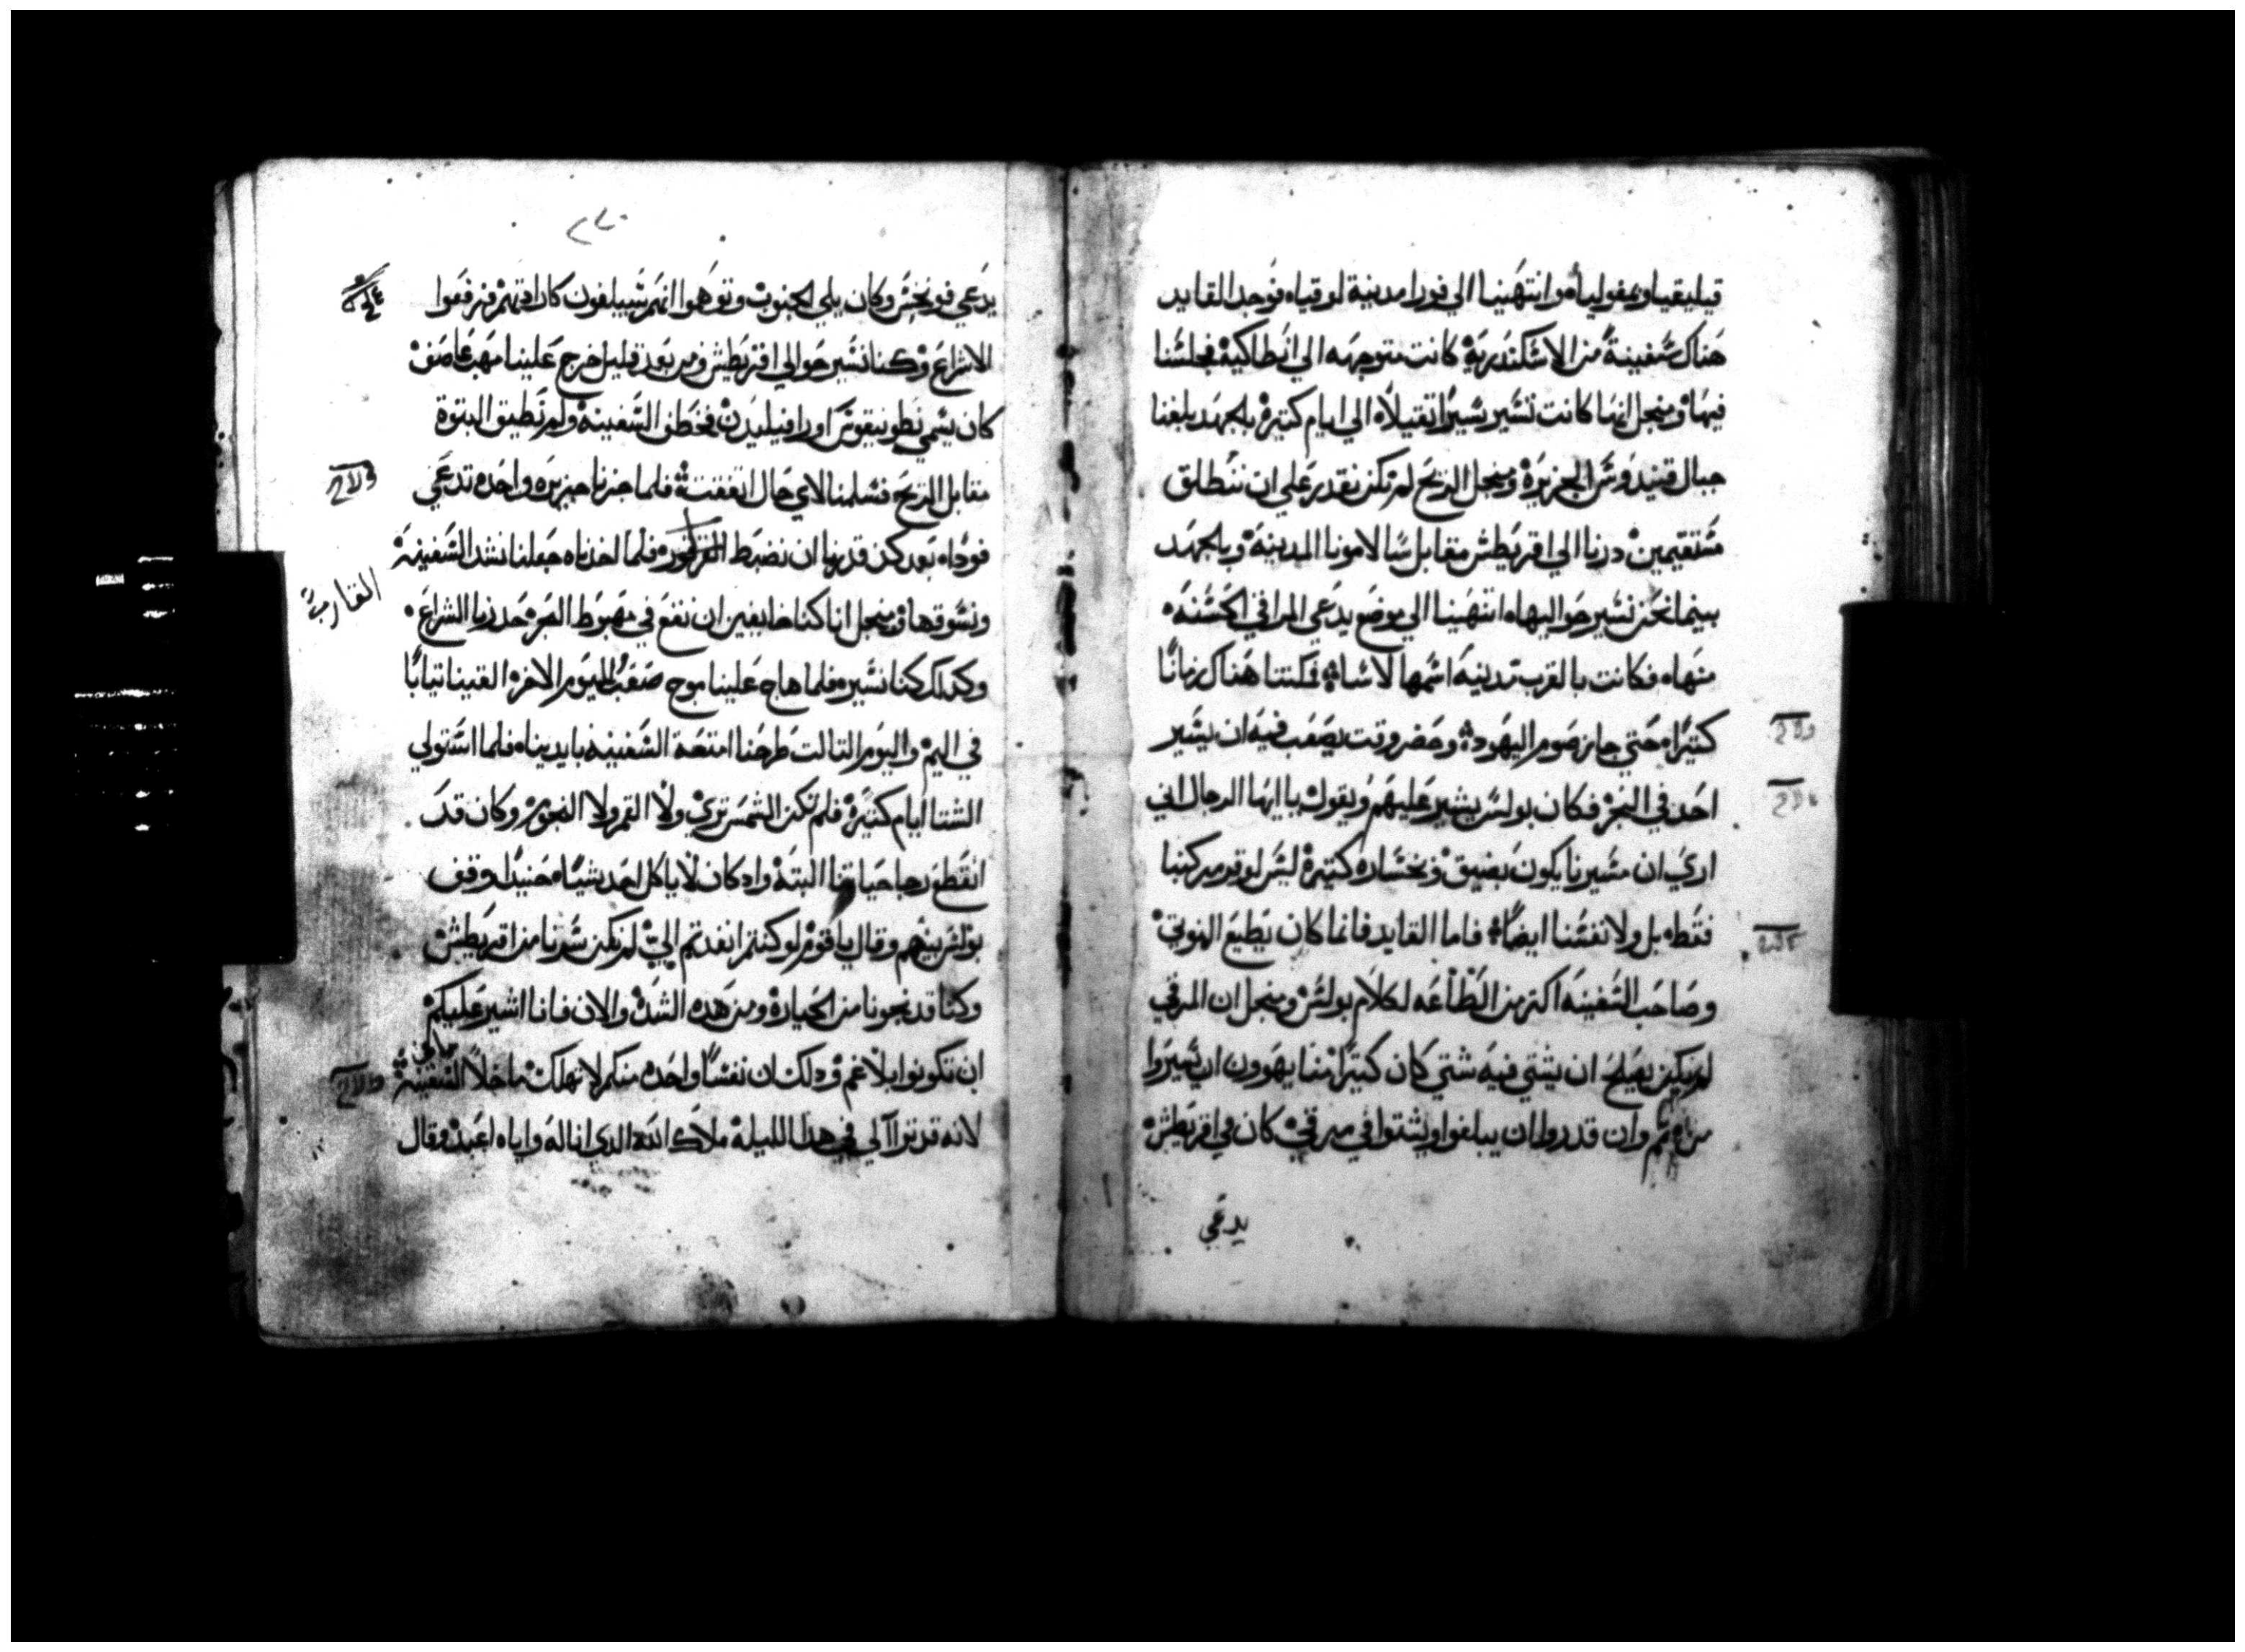 قيليقيا وبمفوليا وانتهينا الي فورا مدينة لوقياه فوجد القايد
هناك سفينة من الاسكندرية كانت متوجهه الي انطاكية فجلسنا
فيها ومنجل انها كانت تسير سيرا تقيلا الي ايام كتيرة بالجهد بلغنا
جبال قنيدوس الجزيرة ومنجل الريح لم نكن نقدر علي ان ننطلق
مستقيمين درنا الي اقريطش مقابل سالامونا المدينة وبالجهد
بينما نحن نسير حواليهاه انتهينا الي موضع يدعي المراقي الحسنه
منهاه فكانت بالقرب مدينه اسمها لاسا فمكتنا هناك زمانا
كتيراه حتي جاز صوم اليهود وحضر وقت يصعب فيه ان يسير
احد في البحر فكان بولس يشير عليهم ويقول يا ايها الرجال اني
اري ان مسيرنا يكون بضيق وخساره كتيرة ليس لوقر مركبنا
فقطه بل ولا نفسنا ايضا فاما القايد فانما كان يطيع النوتي
وصاحب السفينه اكتر من الطاعه لكلام بولس ومنجل ان المرقي
لم يكن يصلح ان يشتي فيه شتي كان كتيرا منا يهوون ان يسيروا
من تم وان قدروا ان يبلغوا ويشتوا في مرقي كان في اقريطش
يدعي
يدعي فونخس وكان يلي الجنوب وتوهموا انهم سيبلغون كارادتهم فرفعوا
الاشراع وكنا نسير حوالي اقريطش ومن بعد قليل خرج علينا مهب عاصف
كان يسمي طوبنيقوس اوراقيليدن فخطف السفينه ولم تطيق البتوة
مقابل الريح فسلمنا لاي حال اتفقت فلما جزنا جزيره واحده تدعي
فوداه بعد كن قدرنا ان نضبط القرقوره فلما اخدناه جعلنا نشد السفينة
القارب
ونسوقها ومنجل انا كنا خايفين ان نقع في مهبوط البحر حدرنا الشراع
وكدلك كنا نسيره فلما هاج علينا موج صعب لليوم الاخر القينا تيابا
في اليم واليوم التالت طرحنا امتعة السفينه بايديناه فلما استولي
الشتا ايام كتيرة فلم تكن الشمس تري ولا القمر ولا النجوم وكان قد
انقطع رجا حياتنا البتة واد كان لا ياكل احد شياه حنيدا وقف
بولس بينهم وقال يا قوم لو كنتم انقدتم الي لم نكن سرنا من اقريطش
وكنا قد نجونا من الخسارة ومن هده الشدة والان فانا اشير عليكم
ان تكونوا بلا غم ودلك ان نفسا واحده منكم لا تهلك ما خلا السفينة
لانه قد ترآآ لي في هدا الليلة ملاك الله الدي انا له واياه اعبد وقال